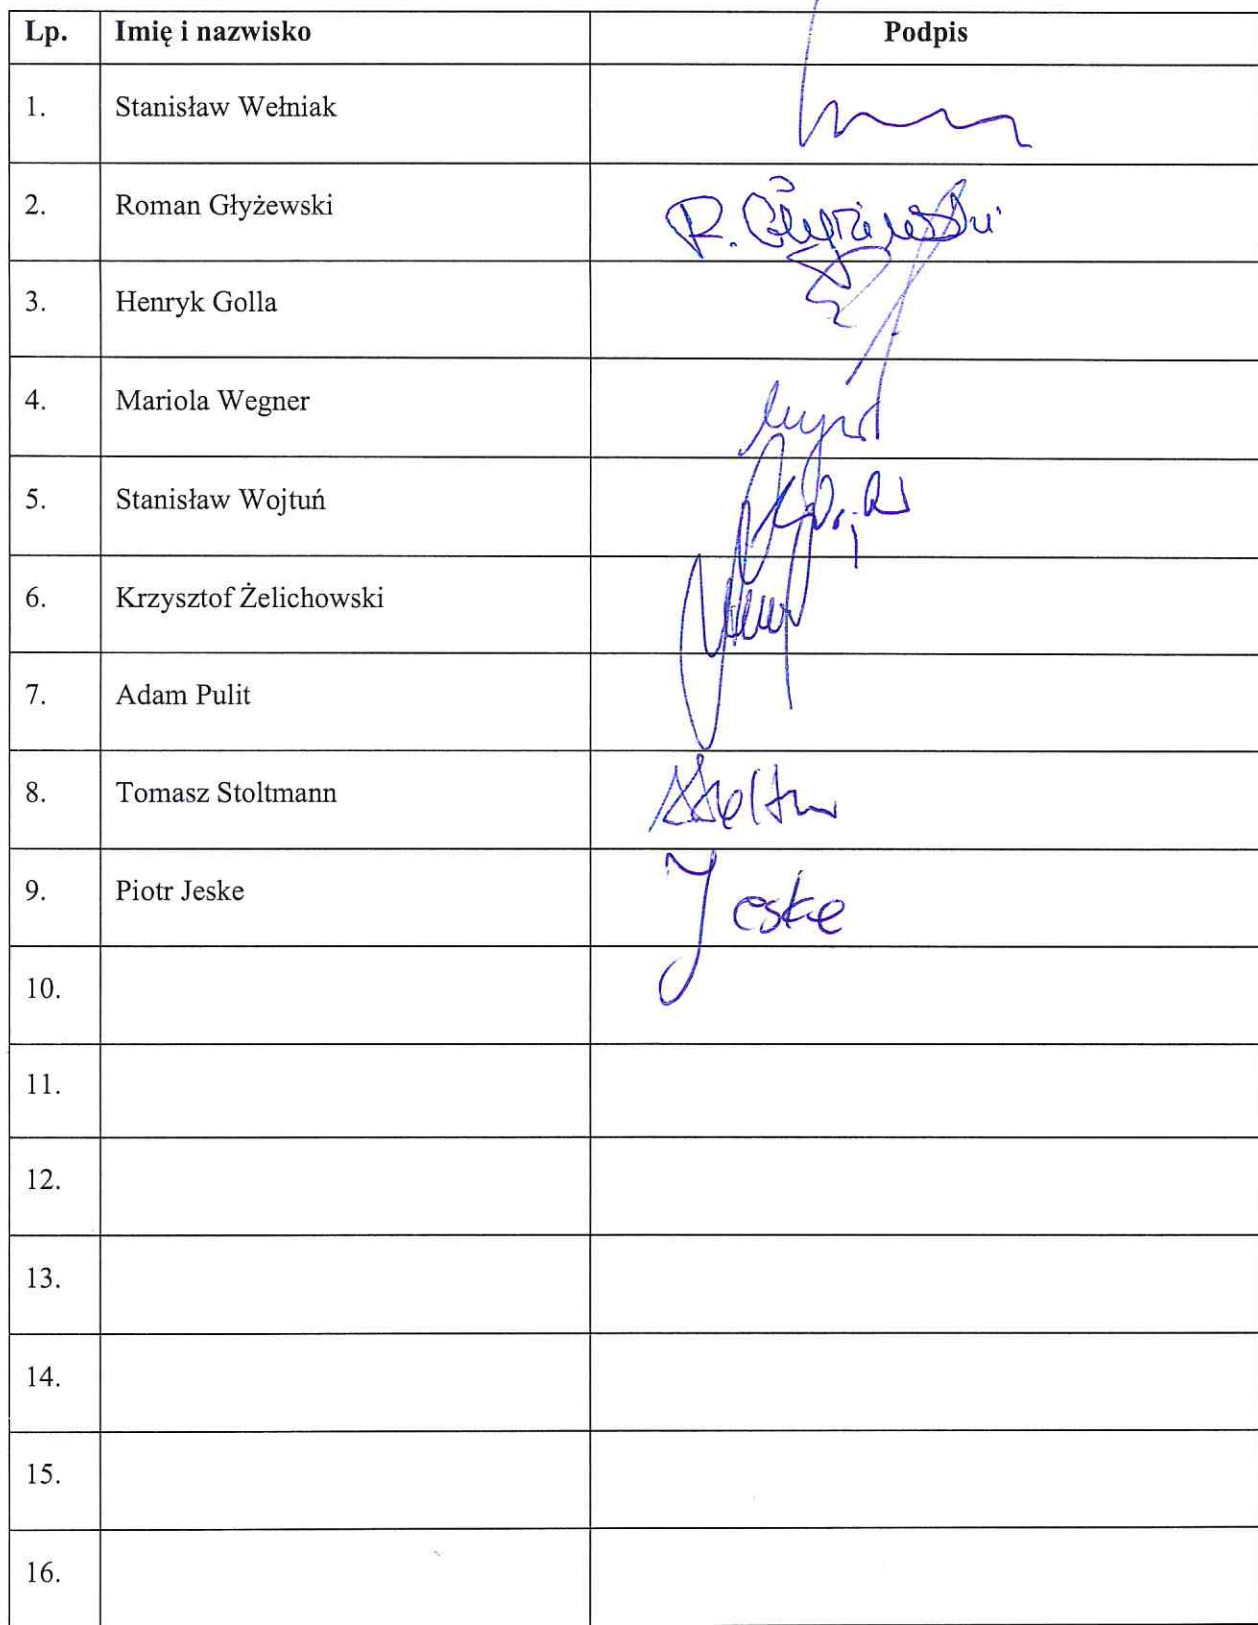 Lp. Imię i nazwisko Podpis
1. Stanisław Wełniak
2. Roman Głyżewski R. Głyżewski
3. Henryk Golla
4. Mariola Wegner
5. Stanisław Wojtuń
6. Krzysztof Żelichowski
7. Adam Pulit
8. Tomasz Stoltmann
9. Piotr Jeske Jeske
10.
11.
12.
13.
14.
15.
16.